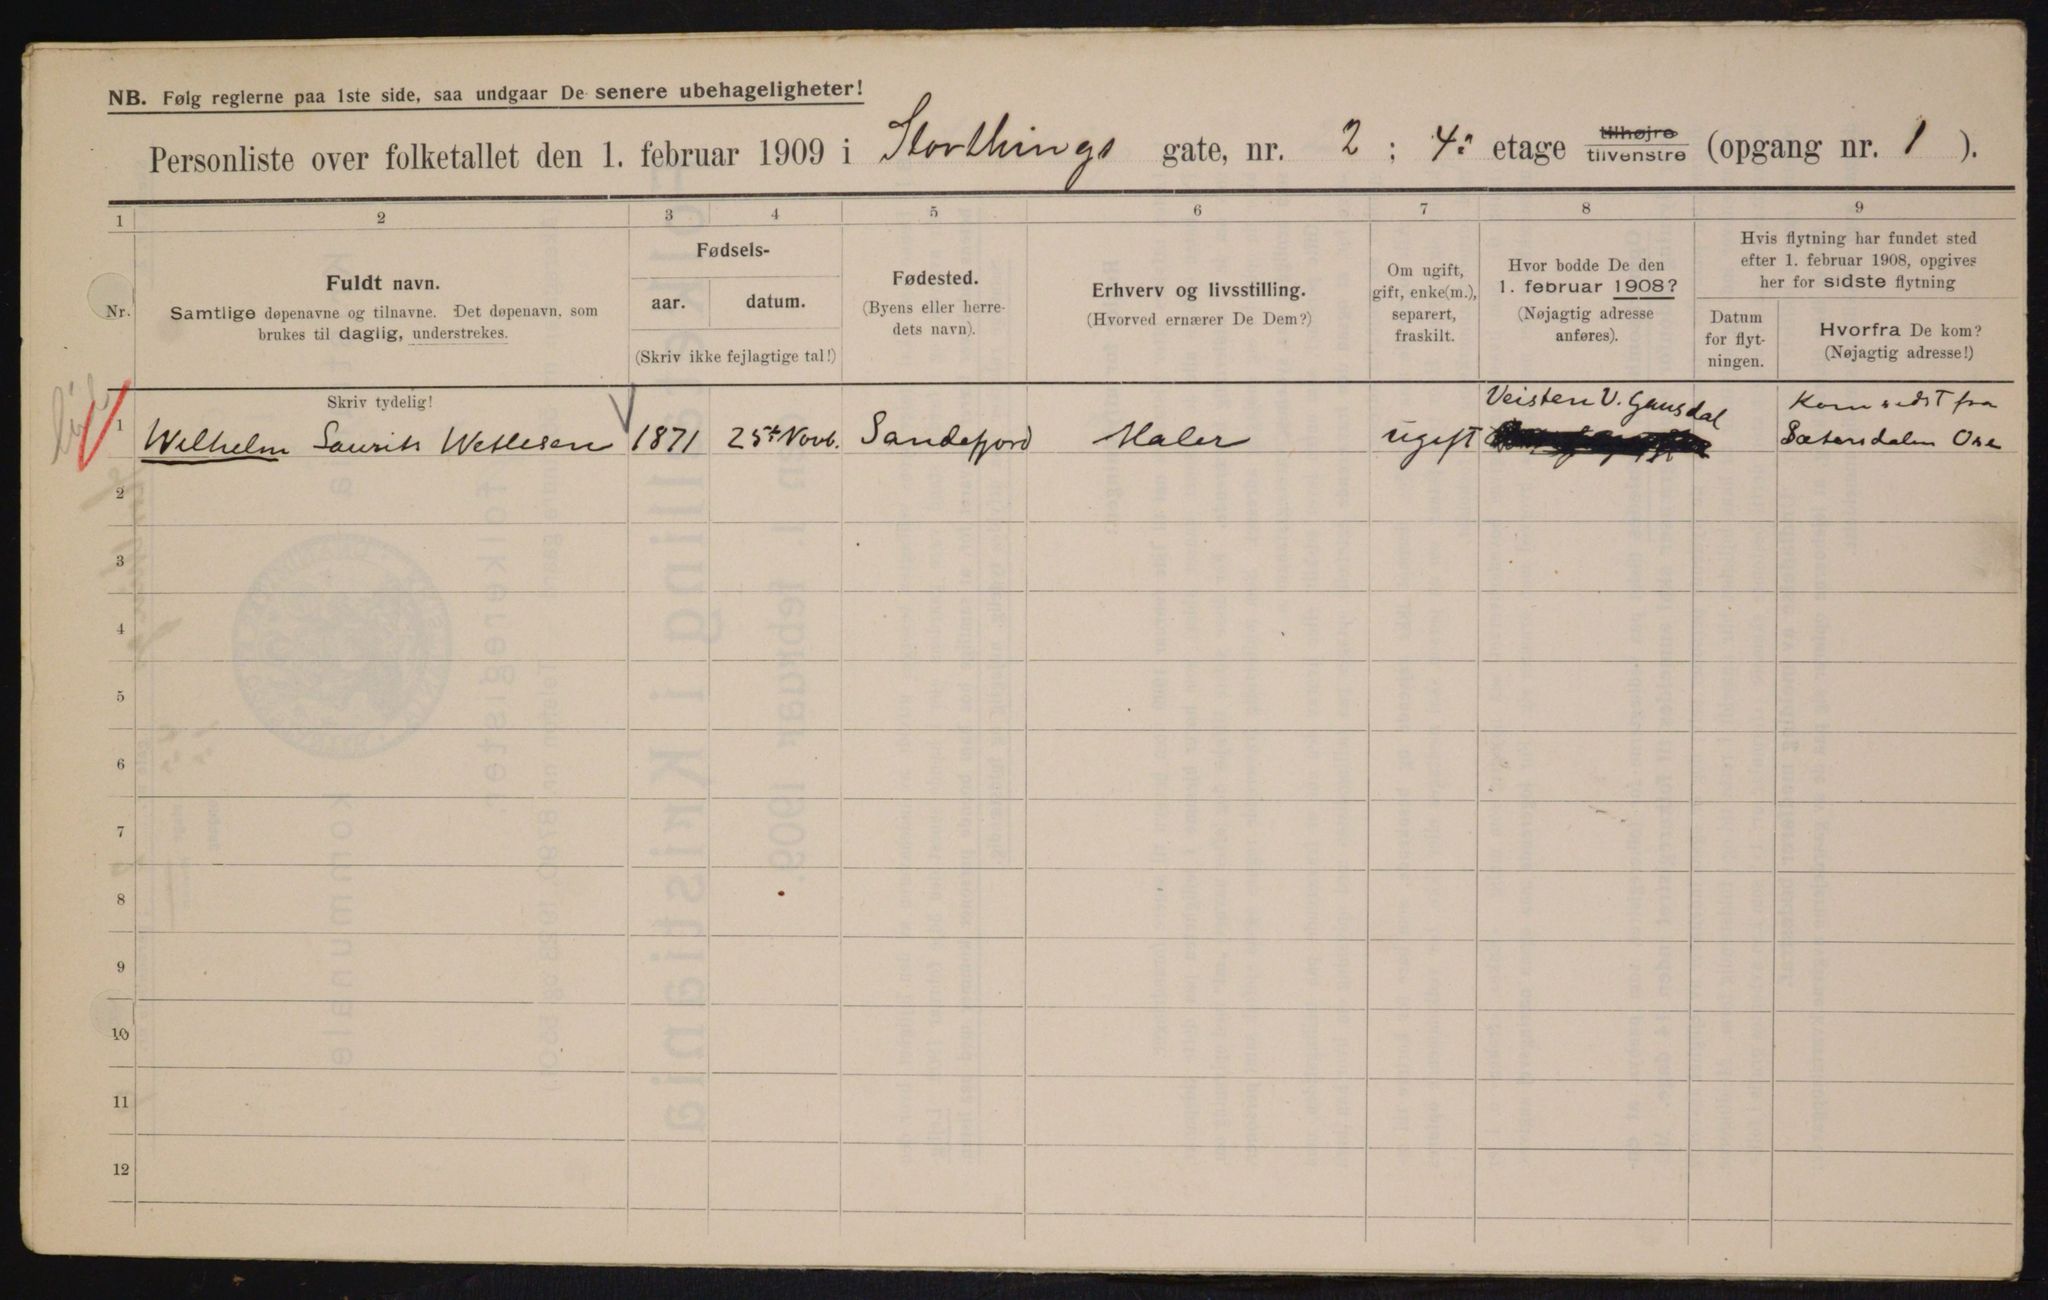 NB. Følg reglerne paa 1ste side, saa undgaar De senere ubehageligheter!
Personliste over folketallet den 1. februar 1909 i Storthings gate, nr. 2 ; 4: etage tilhøjre tilvenstre (opgang nr. 1 ).
1 2 3 4 5 6 7 8 9
Nr.
Fuldt navn.
Samtlige døpenavne og tilnavne. Det døpenavn, som
brukes til daglig, understrekes.
Skriv tydelig!
Fødsels-
aar. datum.
(Skriv ikke fejlagtige tal!)
Fødested.
(Byens eller herre-
dets navn).
Erhverv og livsstilling.
(Hvorved ernærer De Dem?)
Om ugift,
gift, enke(m.),
separert,
fraskilt.
Hvor bodde De den
1. februar 1908?
(Nøjagtig adresse
anføres).
Hvis flytning har fundet sted
efter 1. februar 1908, opgives
her for sidste flytning
Datum
for flyt-
ningen.
Hvorfra De kom?
(Nøjagtig adresse!)
Veisten V. Gausdal Kom sidst fra
1 Wilhelm Laurits Wetlesen 1871 25de Novb. Sandefjord Maler ugift Sætersdalen Ose
2
3
4
5
6
7
8
9
10
11
12